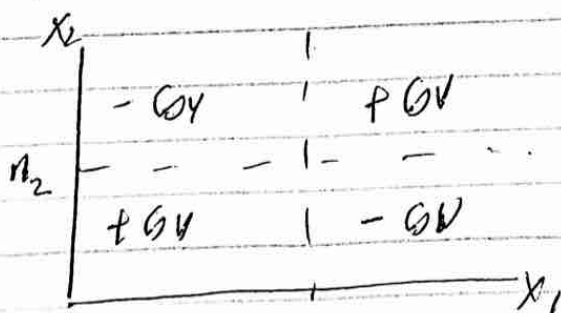 X₂
- COV + COV
m₂
+ COV - COV
X₁